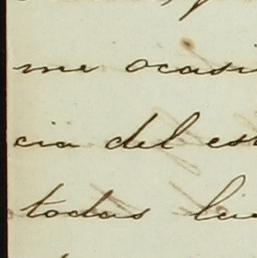 me ocasi
cia del es
todas